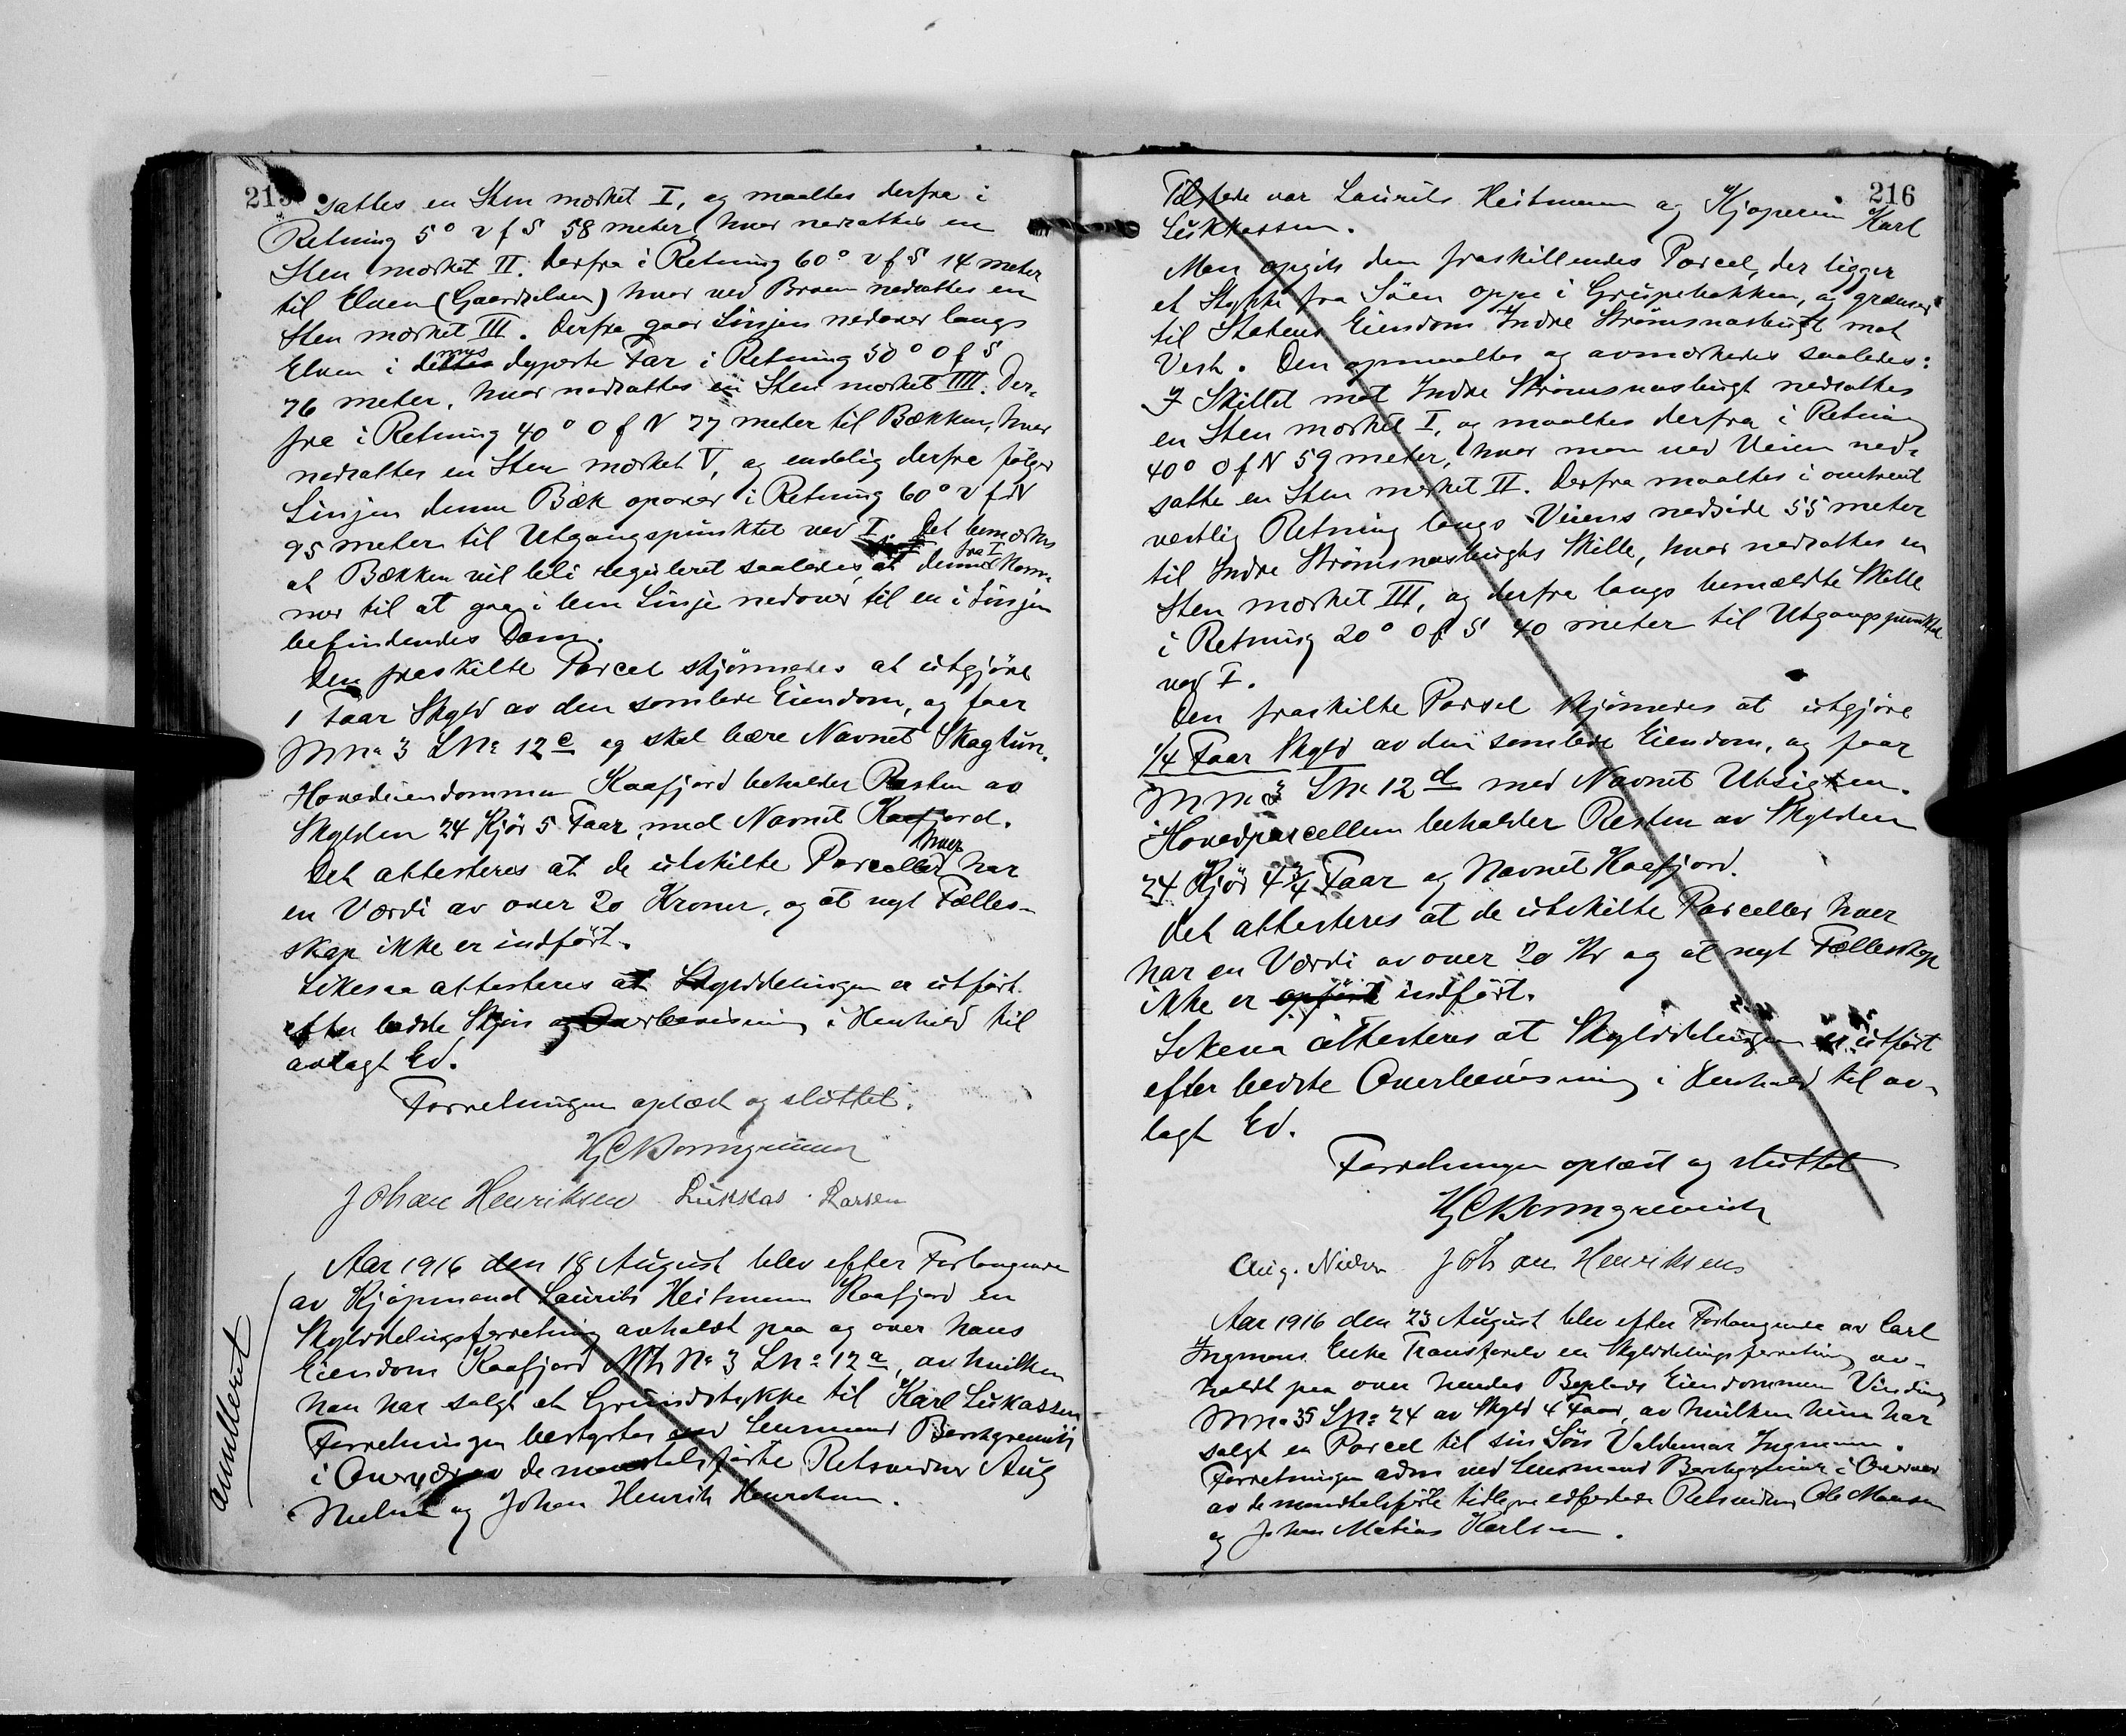 215
sattes en Sten mærket I, og maaltes derfra i
Retning 5° v f S 58 meter, hvor nedsattes en
Sten mærket II. Derfra i Retning 60° v f S 14 meter
til Elven (Gaardselven) hvor ved Broen nedsattes en
Sten mærket III. Derfra gaar Linjen nedover langs
Elven i dennes dypeste Far i Retning 50° O f S
76 meter, hvor nedsattes en Sten mærket IIII. Der-
fra i Retning 40° O f N 77 meter til Bækken, hvor
nedsattes en Sten mærket V, og endelig derfra følger
Linjen denne Bæk opover i Retning 60° v f N
95 meter til Utgangspunktet ved I. Det bemærkes
at Bækken vil bli reguleret saaledes, at denne fra I kom-
mer til at gaa i lem Linje nedover til en i Linjen
befindendes Dam.
Den fraskilte Parcel skjønnedes at utgjøre
1 Faar Skyld av den samlede Eiendom, og faar
MNo 3 LNo 12 c og skal bære Navnet Skaglun.
Hovedeiendommen Kaafjord beholder Resten av
Skylden 24 Kjør 5 Faar, med Navnet Kaafjord.
Det attesteres at de utskilte Parceller hver har
en Værdi av over 20 Kroner, og at nyt Fælles-
skap ikke er indført.
Likesaa attesteres at Skylddelingen er utført
efter bedste Skjøn og Overbevisning i Henhold til
avlagt Ed.
Forretningen oplæst og sluttet.
HC Borchgrevink
Johan Henriksen Lukkas Larsen
Annulleret
Aar 1916 den 18 August blev efter Forlangende
av Kjøpmand Laurits Heitmann Kaafjord en
Skylddelingsforretning avholdt paa og over hans
Eiendom Kaafjord Mtr No 3 LNo 12 a, av hvilken
han har solgt et Grundstykke til Karl Lukassen
Forretningen bestyrtes ved Lensmand Borchgrevink
i Overvær av de mandtalsførte Retsvidner Aug
Nielsen og Johan Henrik Henriksen.
216
Tilstede var Laurits Heitmann og Kjøperen Karl
Lukkassen.
Man opgik den fraskillendes Parcel, der ligger
et Stykke fra Söen oppe i Grupebakken, og grænser
til Statens Eiendom Indre Strømsnasbugt mot
Vest. Den opmaaltes og avmærkedes saaledes:
I Skillet mot Indre Strømsnasbugt nedsattes
en Sten mærket I, og maaltes derfra i Retning
40° O f N 59 meter, hvor man ved Veien ned-
satte en Sten mærket II. Derfra maaltes i omtrent
vestlig Retning langs Veiens nedside 55 meter
til Indre Strømsnasbugts Skille, hvor nedsattes en
Sten mærket III, og derfra langs bemældte Skille
i Retning 20° O f S 40 meter til Utgangspunktet
ved I.
Den fraskilte Parsel skjønnedes at utgjøre
1/4 Faar Skyld av den samlede Eiendom, og faar
MNo 3 LNo 12 d med Navnet Utsigten.
Hovedparcellen beholder Resten av Skylden
24 Kjør 4 3/4 Faar og Navnet Kaafjord.
Det attesteres at de utskilte Parceller hver
har en Værdi av over 20 Kr og at nyt Fællesskap
ikke er opført indført.
Likesaa attesteres at Skylddelingen er utført
efter bedste Overbevisning i Henhold til av-
lagt Ed.
Forretningen oplæst og sluttet
HC Borchgrevink
Aug. Nielsen Johan Henriksens
Aar 1916 den 23 August blev efter Forlangende av Carl
Ingmans Enke Transfarelv en Skylddelingsforretning av-
holdt paa over hendes Boplads Eiendommen Vinding
MNo 35 LNo 24 av Skyld 4 Faar, av hvilken hun har
solgt en Parcel til sin Søn Valdemar Ingman.
Forretningen adm ved Lensmand Borchgrevink i Overvær
av de mandtalsførte tidligere edfæstede Retsvidner Ole Monsen
og Johan Matias Karlsen.